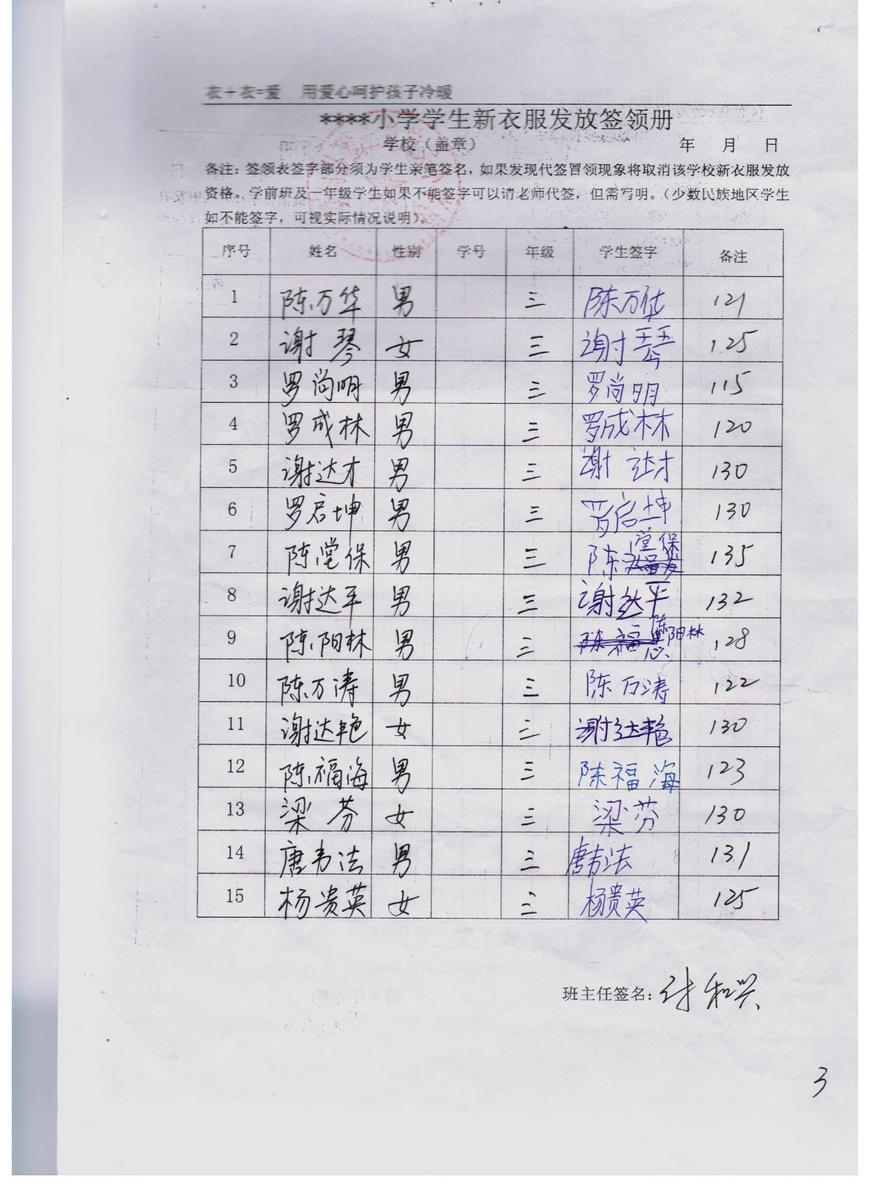 衣+衣=爱 用爱心呵护孩子冷暖
****小学学生新衣服发放签领册
学校（盖章） 年 月 日
备注：签领表签字部分须为学生亲笔签名，如果发现代签冒领现象将取消该学校新衣服发放
资格。学前班及一年级学生如果不能签字可以请老师代签，但需写明。（少数民族地区学生
如不能签字，可视实际情况说明）。
序号 姓名 性别 学号 年级 学生签字 备注
1 陈万华 男 三 陈万华 121
2 谢琴 女 三 谢琴 125
3 罗尚明 男 三 罗尚明 115
4 罗成林 男 三 罗成林 120
5 谢达才 男 三 谢达才 130
6 罗启坤 男 三 罗启坤 130
7 陈堂保 男 三 陈堂保 135
8 谢达平 男 三 谢达平 132
9 陈阳林 男 三 陈福 陈阳林 128
10 陈万涛 男 三 陈万涛 122
11 谢达艳 女 三 谢达艳 130
12 陈福海 男 三 陈福海 123
13 梁芬 女 三 梁芬 130
14 唐韦法 男 三 唐韦法 131
15 杨贵英 女 三 杨贵英 125
班主任签名：
3